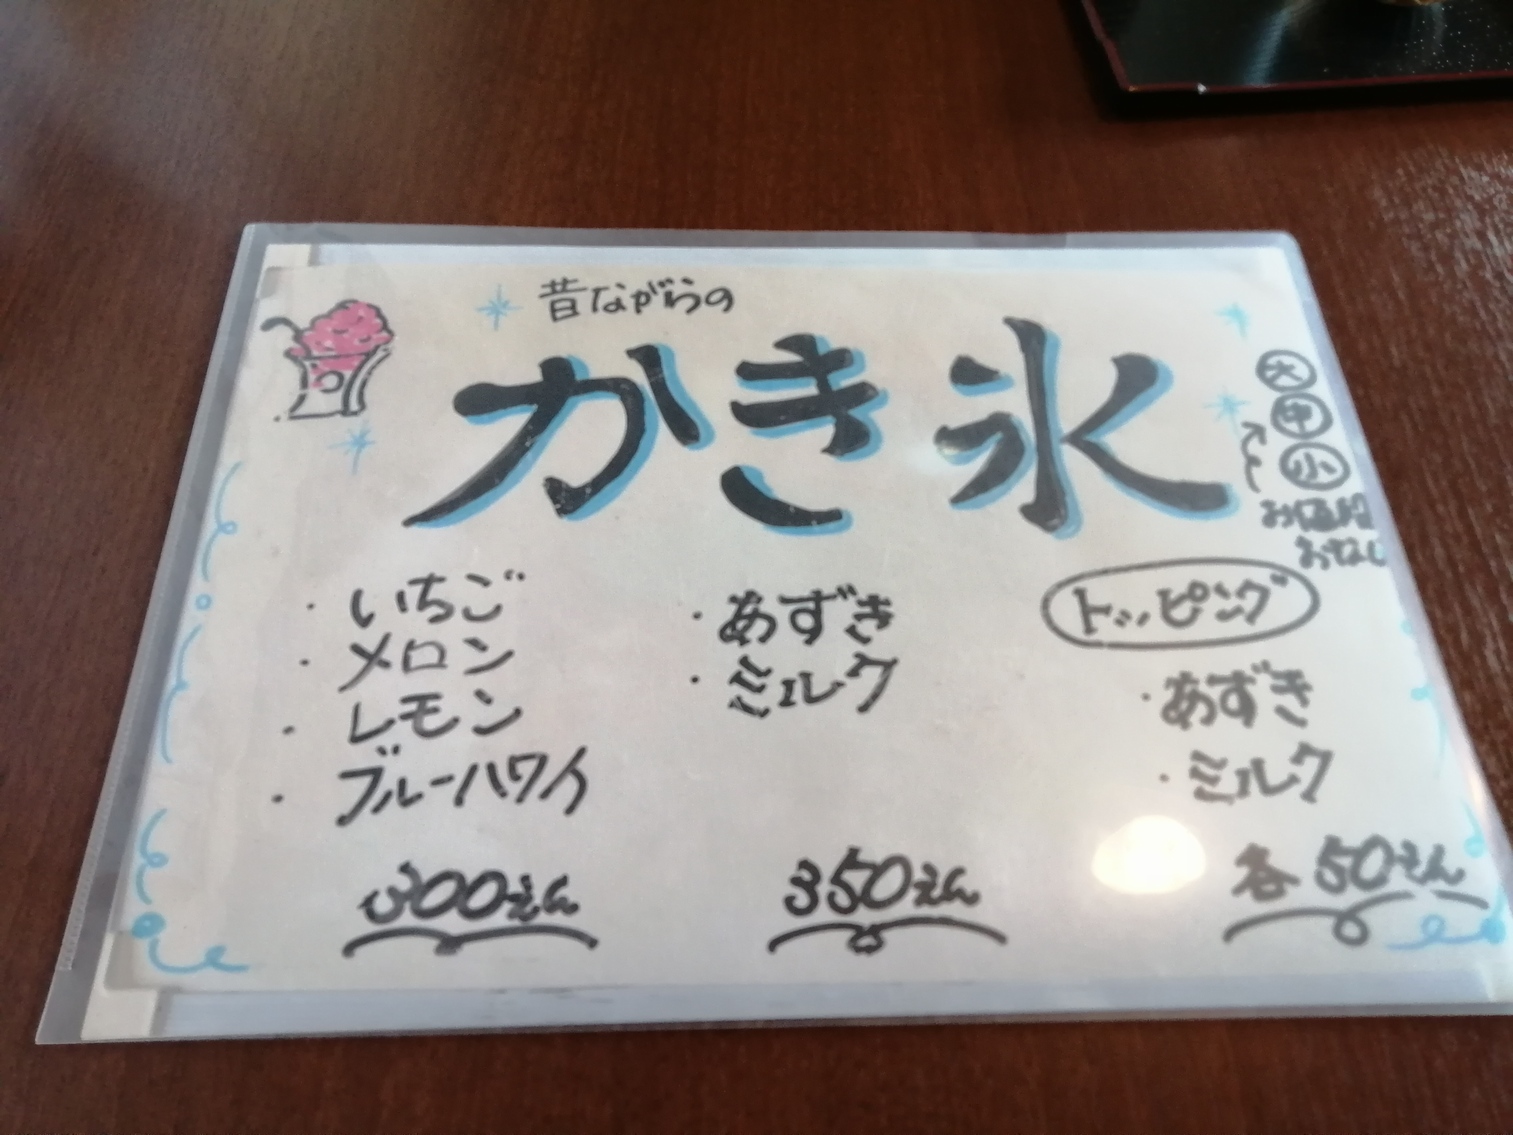 昔ながらの
かき氷
大
中
小
お値段
おなじ
・いちご
・メロン
・レモン
・ブルーハワイ
300えん
・あずき
・ミルク
350えん
トッピング
・あずき
・ミルク
各50えん